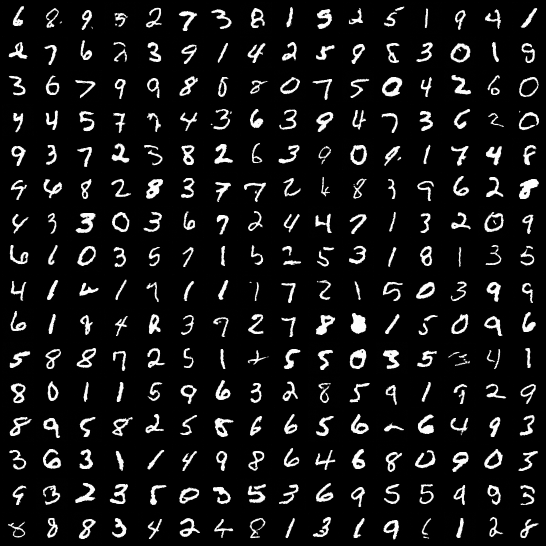 6 8 9 5 2 7 3 8 1 5 2 5 1 9 4 1
2 7 6 2 3 9 1 4 2 5 9 8 3 0 1 9
3 6 7 9 9 8 8 8 0 7 5 0 4 2 6 0
4 4 5 7 7 4 3 6 3 9 4 7 3 6 2 0
9 3 7 2 3 8 2 6 3 9 0 9 1 7 4 8
9 6 8 2 8 3 7 7 2 6 8 3 9 6 2 8
4 3 3 0 3 6 7 2 4 4 7 1 3 2 0 9
6 1 0 3 5 7 1 5 2 5 3 1 8 1 3 5
4 1 4 1 7 1 1 1 7 2 1 5 0 3 9 9
6 1 9 4 2 3 7 2 7 8 8 1 5 0 9 6
5 8 8 7 2 5 1 2 5 5 0 3 5 3 4 1
8 0 1 1 5 9 6 3 2 8 5 9 1 9 2 9
8 9 5 8 2 5 8 6 6 5 6 2 6 4 9 3
3 6 3 1 1 4 9 8 6 4 6 8 0 9 0 3
9 3 2 3 5 0 3 5 3 6 9 5 5 9 9 3
8 8 8 3 4 2 4 8 1 3 1 9 6 1 2 8